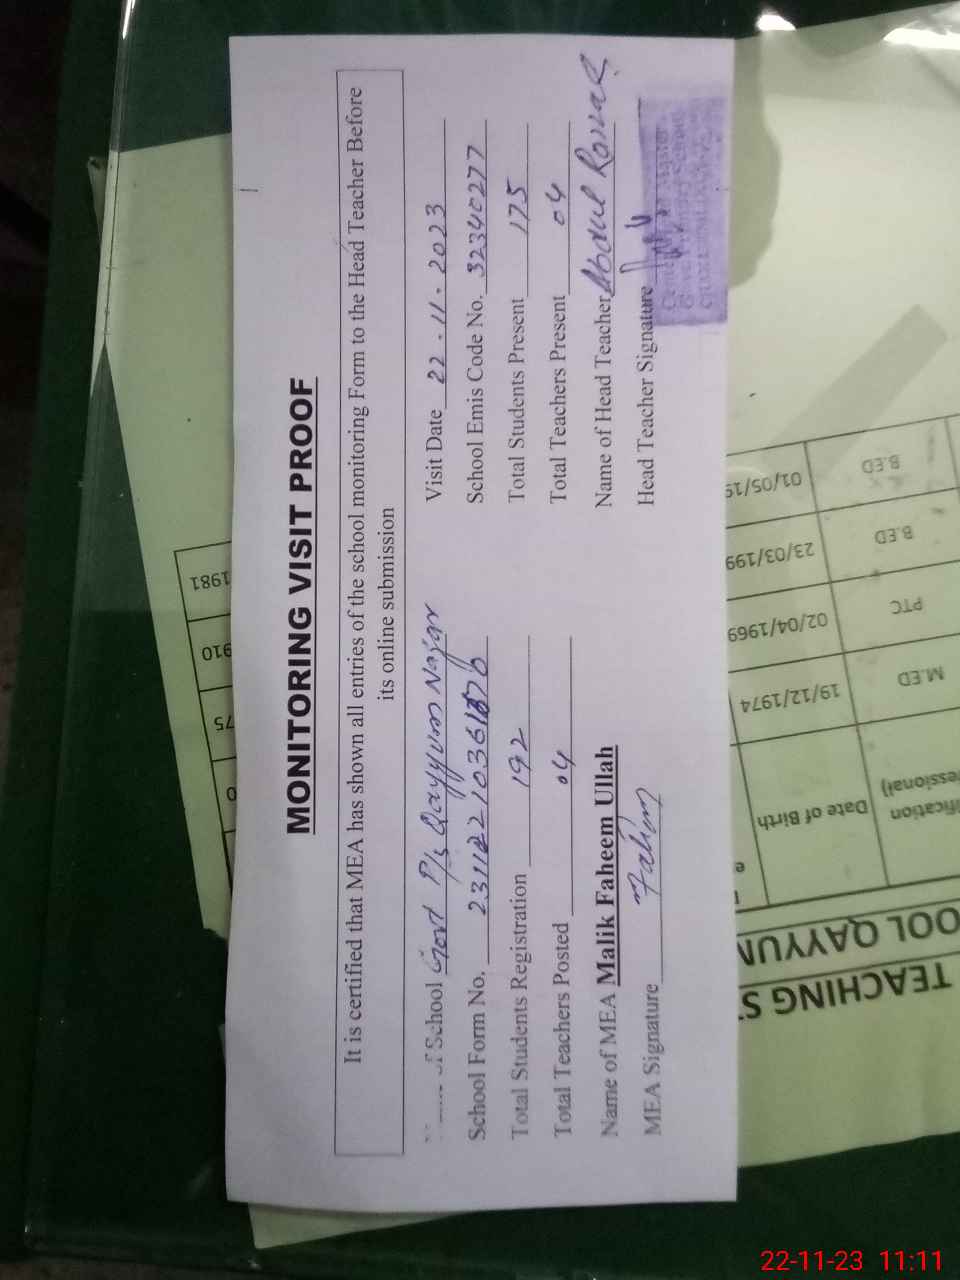 MONITORING VISIT PROOF
It is certified that MEA has shown all entries of the school monitoring Form to the Head Teacher Before
its online submission
of School Govt P/s Qayyum Nagar Visit Date 22-11-2023
School Form No. School Emis Code No. 32340277
Total Students Registration 192 Total Students Present 175
Total Teachers Posted 04 Total Teachers Present 04
Name of MEA Malik Faheem Ullah Name of Head Teacher Abdul Razzak
MEA Signature Fahim Head Teacher Signature
TEACHING
OOL QAYYUM
Date of Birth 19/12/1974 02/04/1969 23/03/199 01/05/19
M.ED PTC B.ED B.ED
75 910 1981
22-11-23 11:11